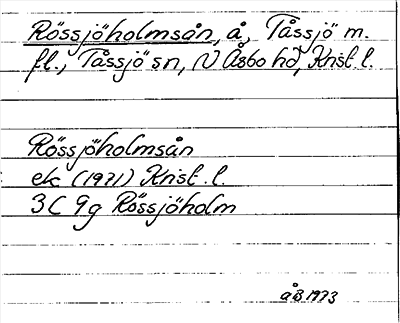 Rössjöholmsån, å, Tåssjö m.
fl., Tåssjö sn, N Åsbo hd, Krist. l.
Rössjöholmsån
ek (1971) Krist. l.
3C 9g Rössjöholm
åB 1973